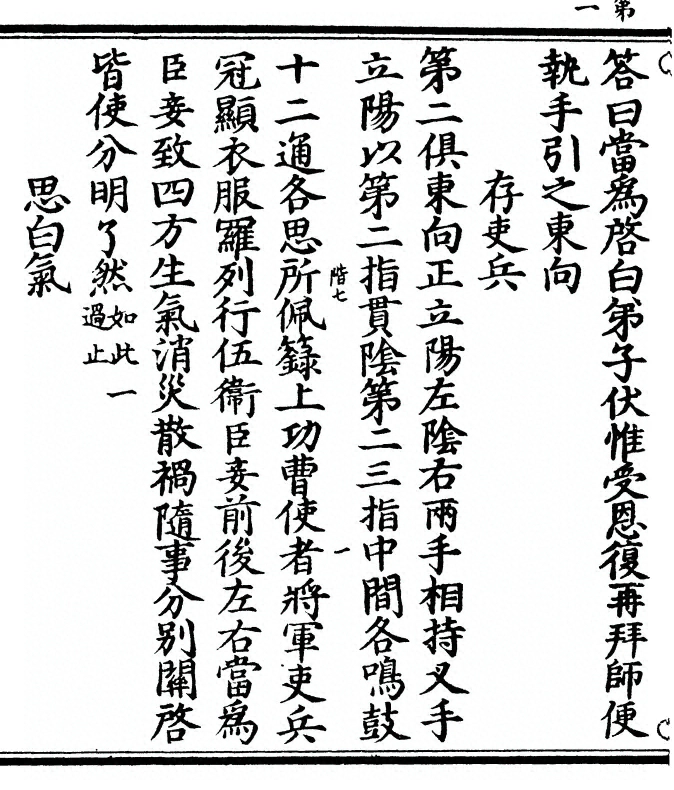 第一
答曰當為啓白弟子伏惟受恩復再拜師便
執手引之東向
存吏兵
第二俱東向正立陽左陰右兩手相持叉手
立陽以第二指貫陰第二三指中間各鳴鼓
十二通各思所佩籙上功曹使者將軍吏兵
階七
一
冠顯衣服羅列行伍衛臣妾前後左右當為
臣妾致四方生氣消災散禍隨事分別關啓
皆使分明了然如此過止一
思白氣